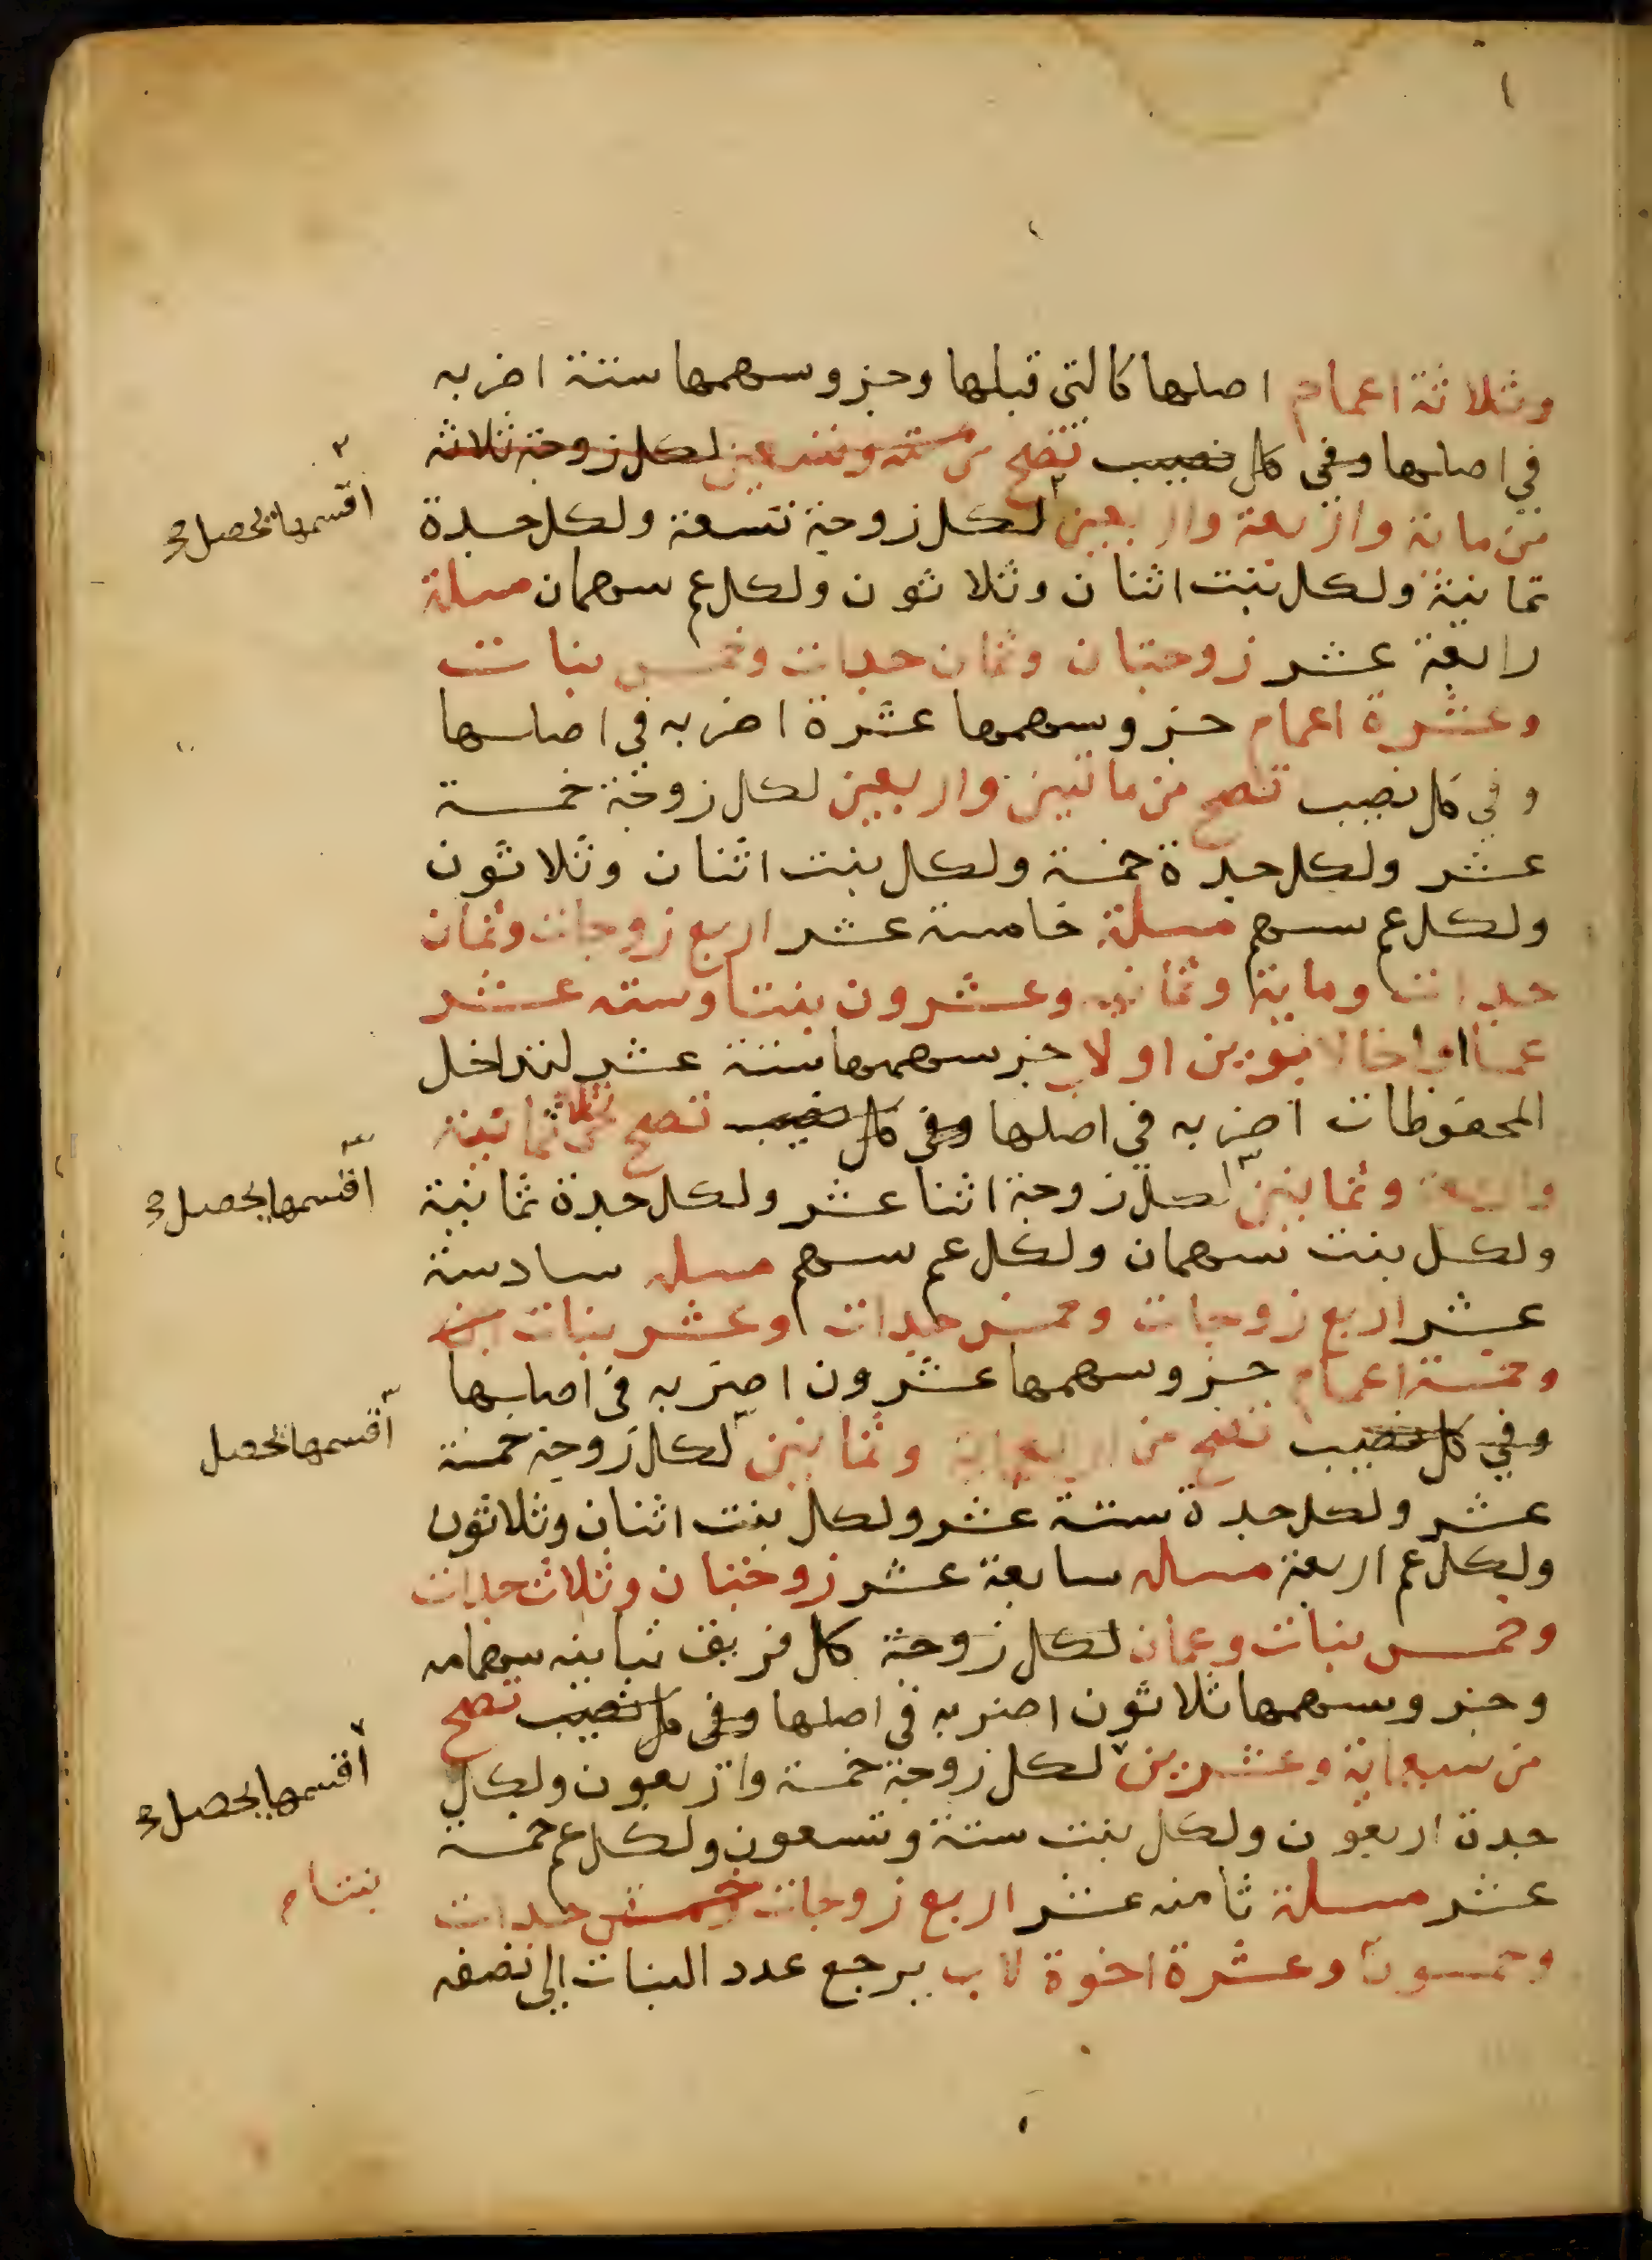 وثلاثة اعمام اصلها كالتى قبلها وجزو سهمها ستة اضربه
في اصلها وفى كل نصيب تصح من ستة وتسعين لكل زوجة ثلاثة
من مائة واربعة واربعين لكل زوجة تسعة ولكل جدة
ثمانية ولكل بنت اثنان وثلاثون ولكل عم سهمان مسلة
رابعة عشر زوجتان وثمان جدات وخمس بنات
وعشرة اعمام جزو سهمها عشرة اضربه في اصلها
وفي كل نصيب تصح من مائتين واربعين لكل زوجة خمسة
عشر ولكل جدة خمسة ولكل بنت اثنان وثلاثون
ولكل عم سهم مسلة خامسة عشر اربع زوجات وثمان
جدات وماية وثمانيه وعشرون بنتا وستة عشر
عما او اخا لابوين او لاب جز سهمها ستة عشر لتداخل
المحفوظات اضربه في اصلها وفي كل نصيب تصح من ثلاثماية
واربعة وثمانين لكل زوجة اثنا عشر ولكل جدة ثمانية
ولكل بنت سهمان ولكل عم سهم مسله سادسة
عشر اربع زوجات وخمس جدات وعشر بنات
وخمسة اعمام جزو سهمها عشرون اضربه في اصلها
وفي كل نصيب تصح من اربعماية وثمانين لكل زوجة خمسة
عشر ولكل جدة ستة عشر ولكل بنت اثنان وثلاثون
ولكل عم اربعة مساله سابعة عشر زوجتان وثلاث جدات
وخمس بنات وعمان لكل زوجة كل فريق تباينه سهامه
وجزو سهمها ثلاثون اضربه في اصلها وفي كل نصيب تصح
من سبعماية وعشرين لكل زوجة خمسة واربعون ولكل
جدة اربعون ولكل بنت ستة وتسعون ولكل عم خمسة
عشر مسلة ثامنه عشر اربع زوجات وخمس جدات
وخمسون وعشرة اخوة لاب يرجع عدد البنات الى نصفه
اقسمها يحصل
اقسمها يحصل
اقسمها يحصل
اقسمها يحصل
بنتا م